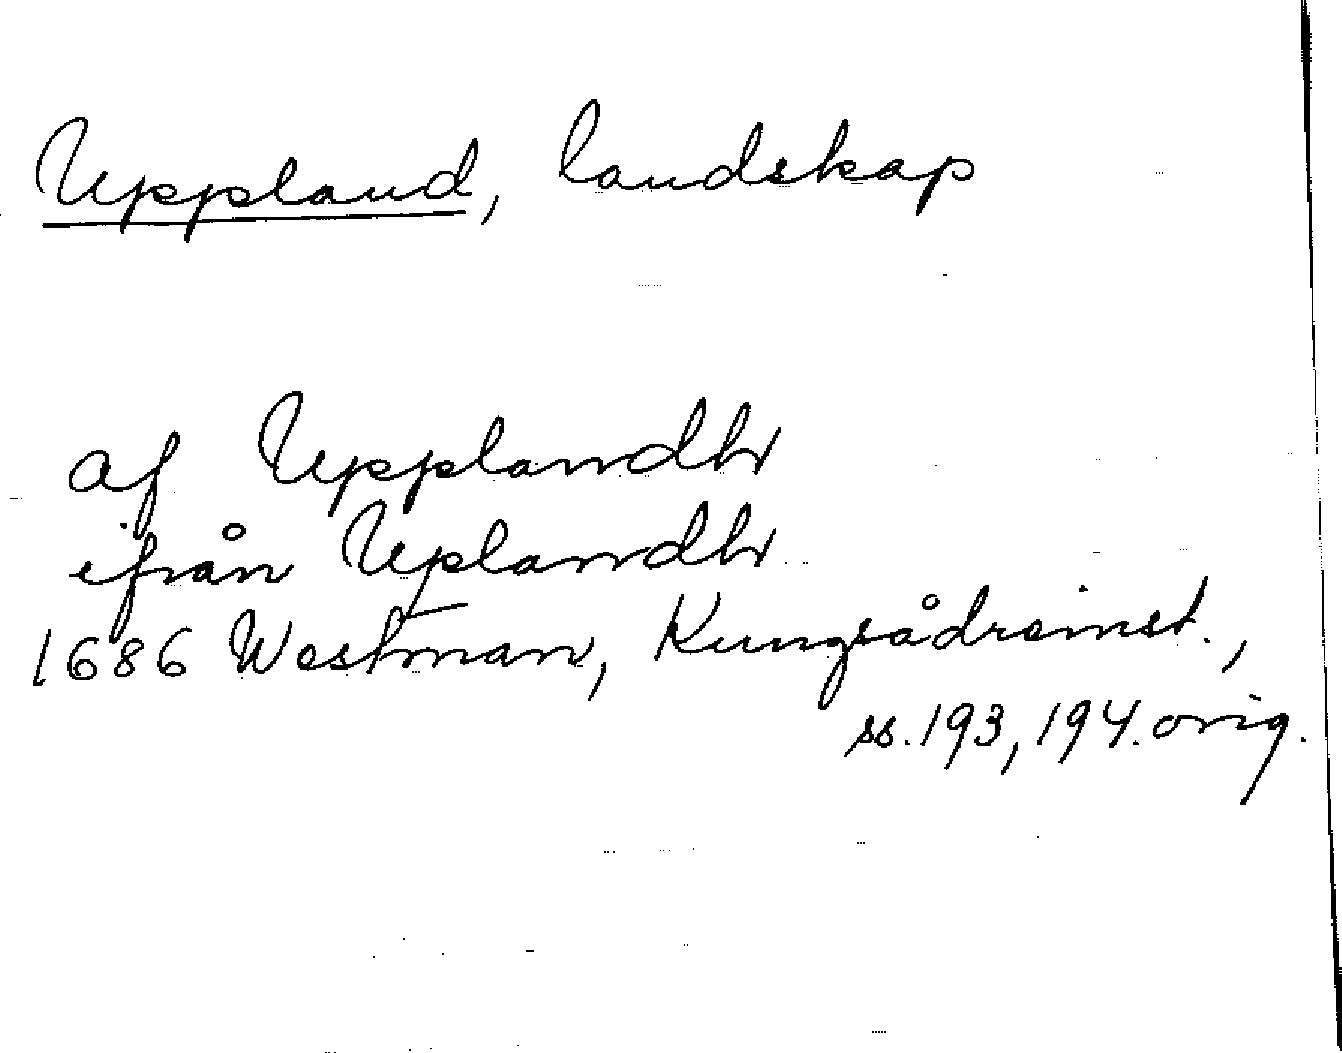 Uppland, landskap
af Upplandh
ifrån Uplandh
1686 Westman, Kungsådreinst.,
ss. 193, 194. orig.